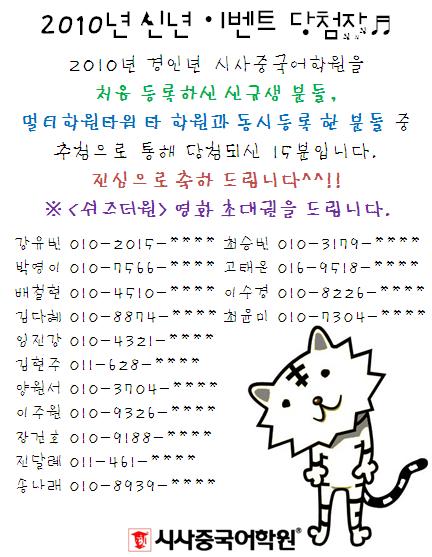 2010년 신년 이벤트 당첨자♬
2010년 경인년 시사중국어학원을
처음 등록하신 신규생 분들,
멀티학원타워 타 학원과 동시등록 한 분들 중
추첨으로 통해 당첨되신 15분입니다.
진심으로 축하 드립니다^^!!
※ <쉬즈더원> 영화 초대권을 드립니다.
강유빈 010-2015-**** 최승빈 010-3179-****
박영이 010-7566-**** 고태온 016-9518-****
배철현 010-4510-**** 이수경 010-8226-****
김다혜 010-8874-**** 최윤미 010-7304-****
임진강 010-4321-****
김현주 011-628-****
양원서 010-3704-****
이주원 010-9326-****
장건호 010-9188-****
진달래 011-461-****
송나래 010-8939-****
시사중국어학원®